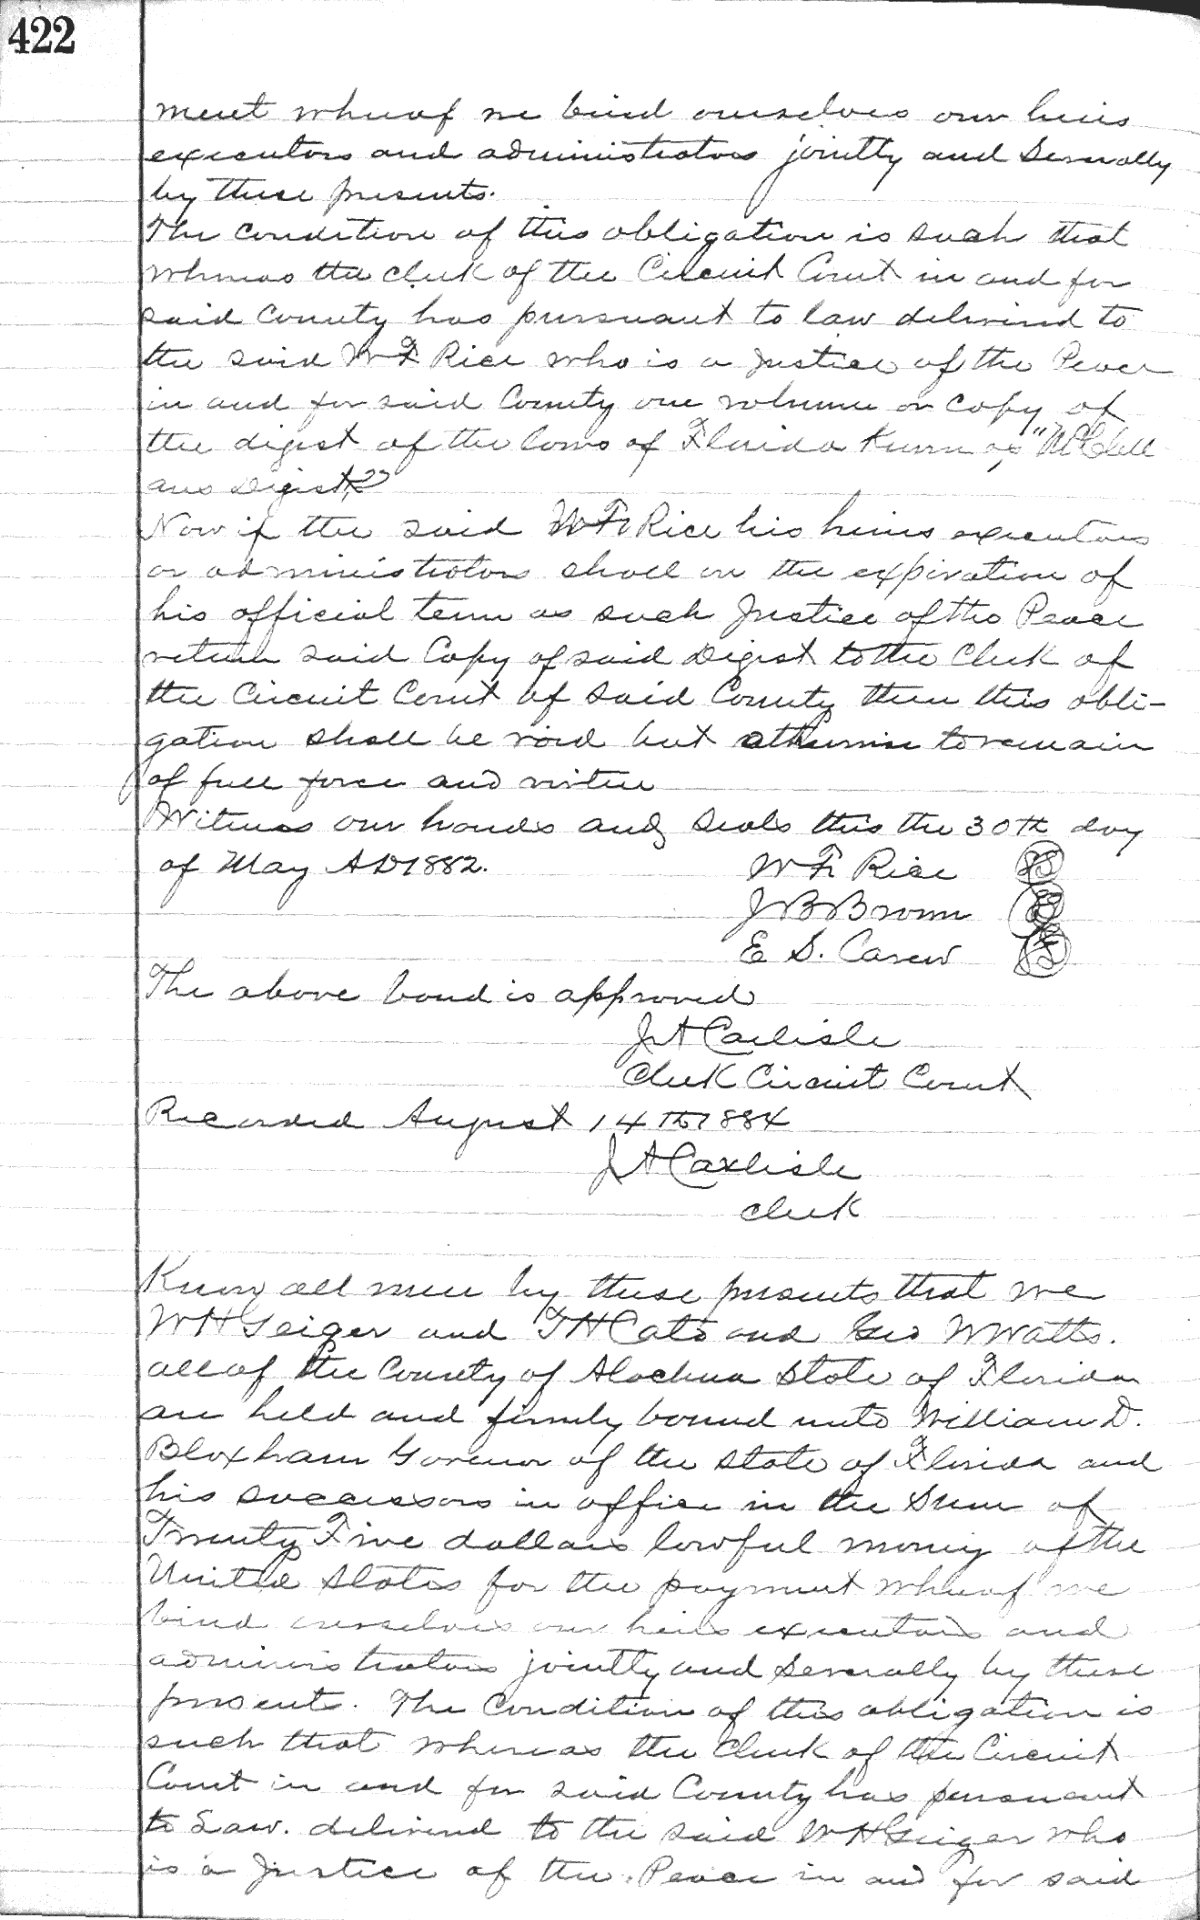 422
ment whereof we bind ourselves our heirs
executors and administrators jointly and Severally
by these presents.
The condition of this obligation is such that
whereas the clerk of the Circuit Court in and for
said County has pursuant to law delivered to
the said W F Rice who is a Justice of the Peace
in and for said County one volume or copy of
the digest of the laws of Florida Known as "McClell
ans Digest"
Now if the said W F Rice his heirs executors
or administrators shall on the expiration of
his official term as such Justice of the Peace
return said Copy of said Digest to the Clerk of
the Circuit Court of said County then this obli-
gation shall be void but otherwise to remain
of full force and virtue
Witness our hands and seals this the 30th day
of May AD 1882.
W F Rice
J B Brown
E S. Carew
The above bond is approved
J A Carlisle
Clerk Circuit Court
Recorded August 14th 1884
J A Carlisle
Clerk
Know all men by these presents that we
W H Geiger and T H Cato and Geo W Watts.
all of the County of Alachua State of Florida
are held and firmly bound unto William D.
Bloxham Govenor of the State of Florida and
his successors in office in the Sum of
Twenty Five dollars lawful money of the
United States for the payment whereof we
bind ourselves our heirs executors and
administrators jointly and Severally by these
present. The Condition of this obligation is
such that whereas the Clerk of the Circuit
Court in and for said County has pursuant
to Law. delivered to the said W H Geiger who
is a Justice of the Peace in and for said